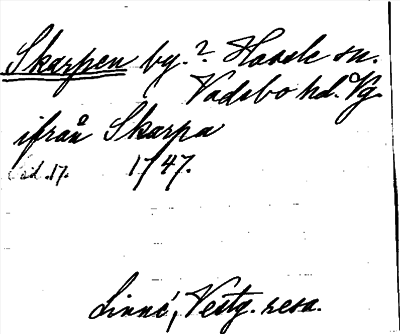 Skarpen by.? Hassle sn.
Vadsbo hd. Vg.
ifrån Skarpa
sid. 17. 1747.
Linné, Vestg. resa.